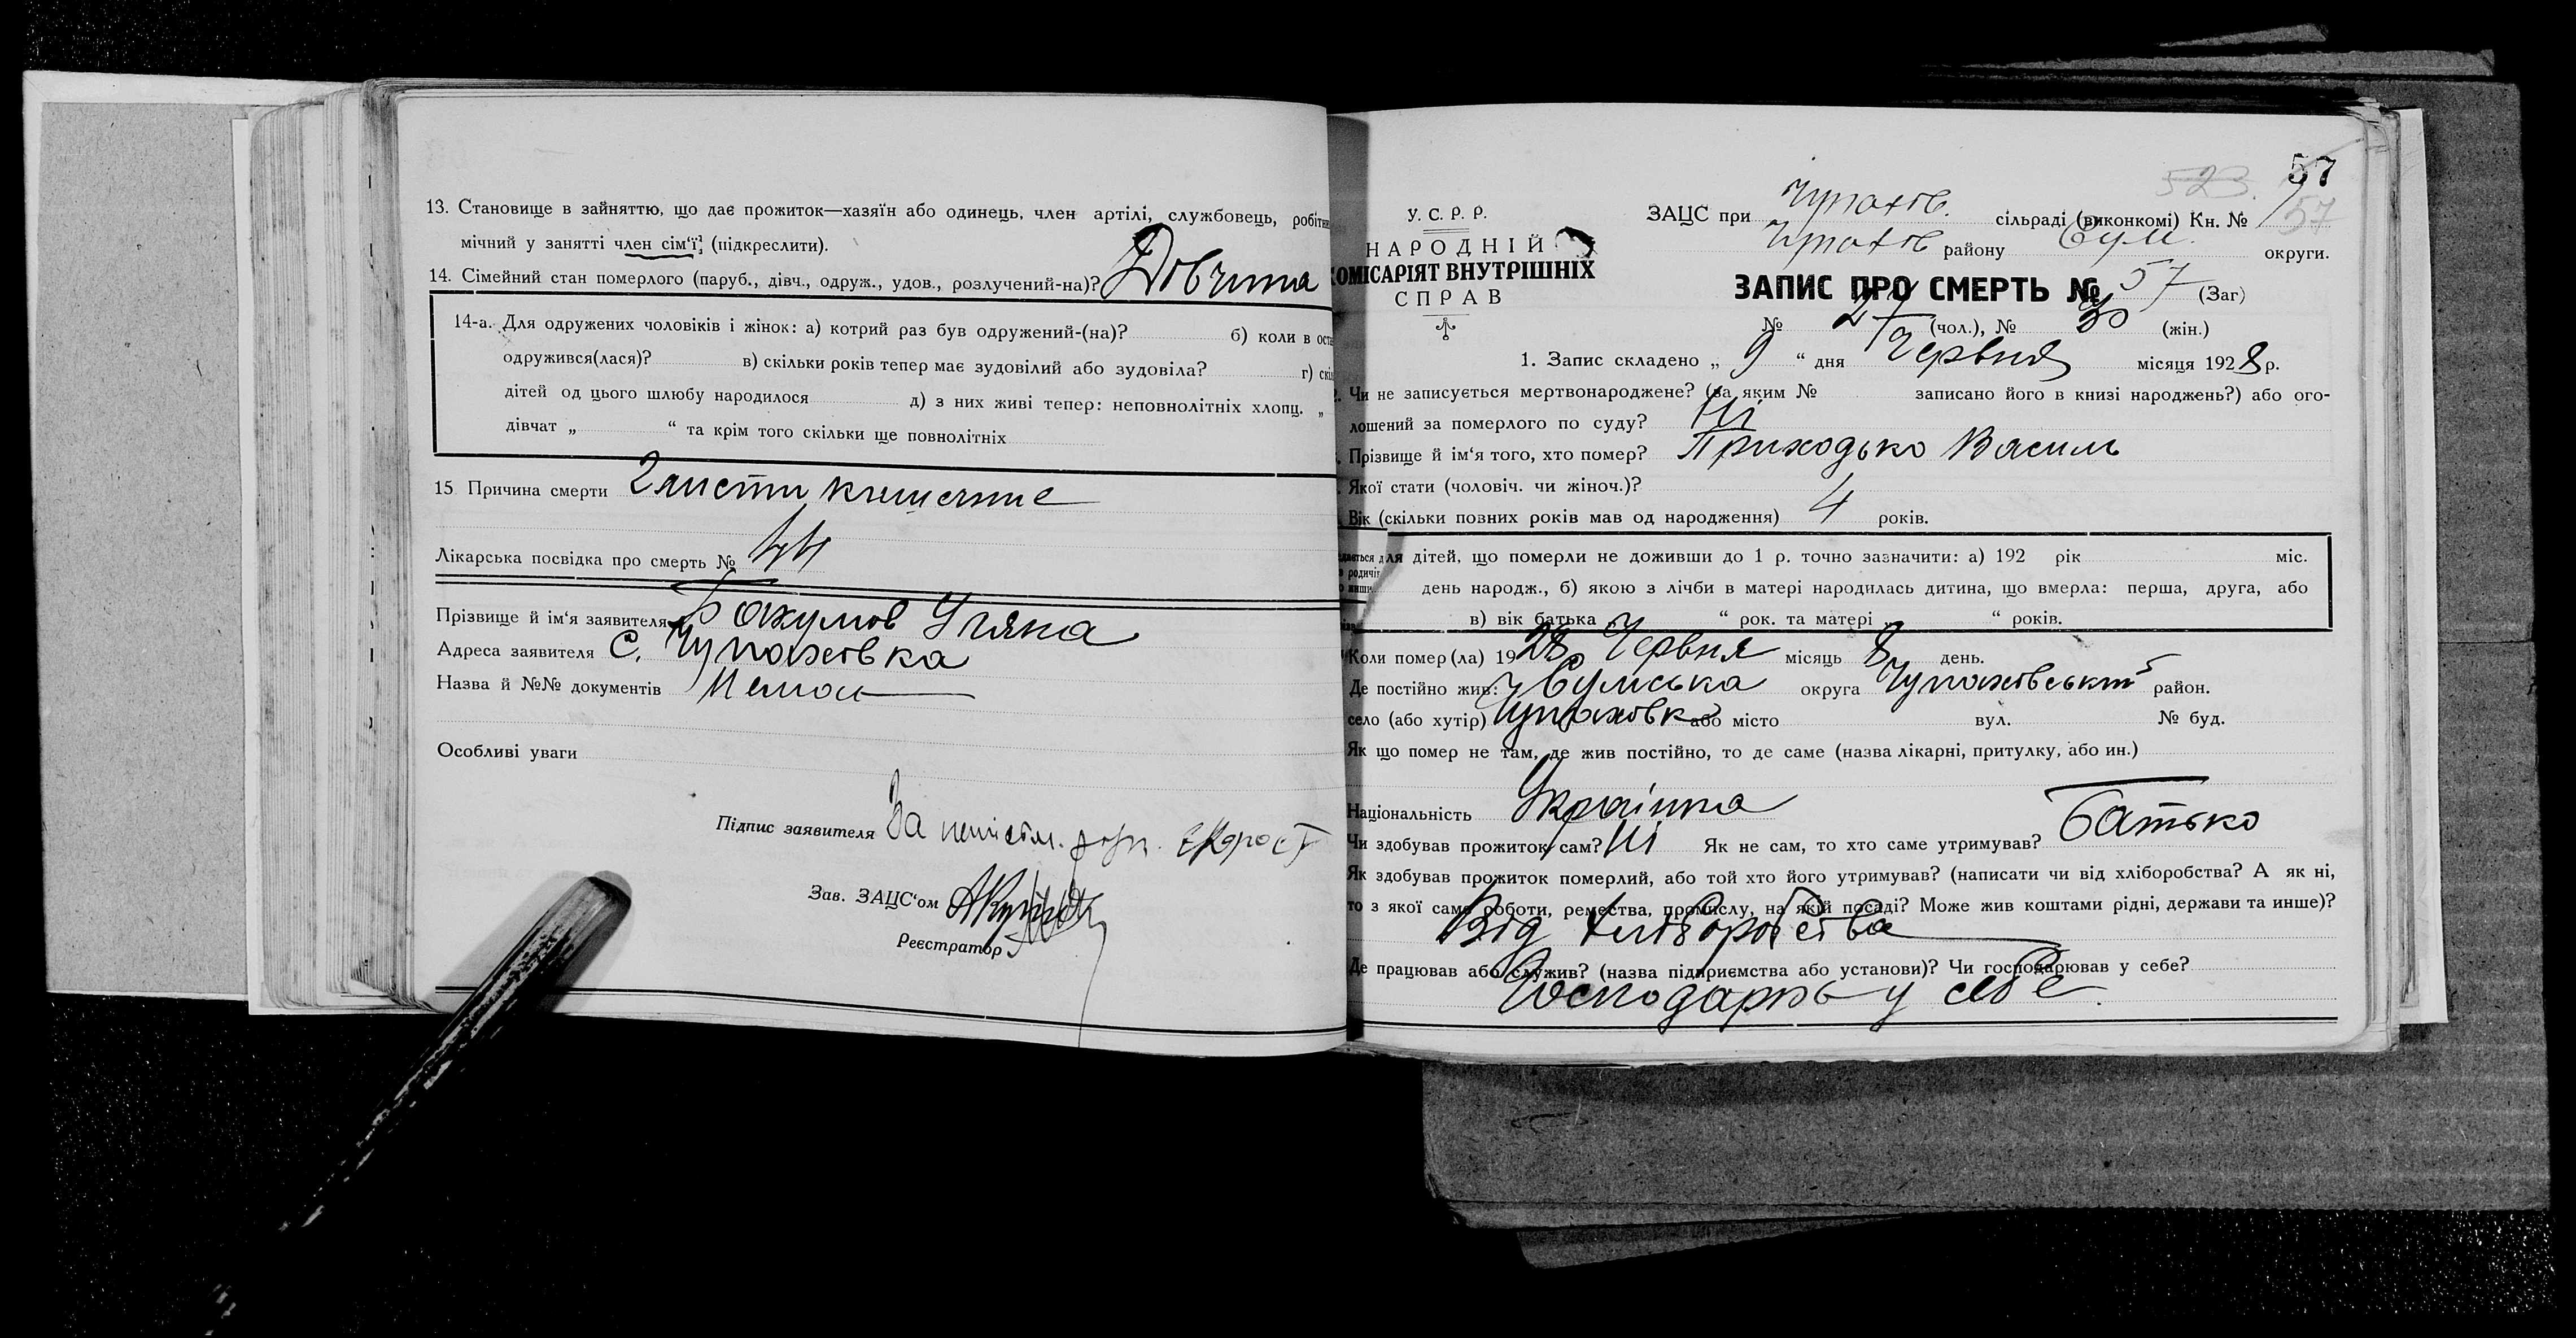 13. Становище в зайняттю, що дає прожиток—хазяїн або одинець, член артілі, службовець,
мічний у занятті член сім'ї, (підкреслити).
14. Сімейний стан померлого (паруб., дівч., одруж., удов., розлучений-на)? Дівчина
14-а. Для одружених чоловіків і жінок: а) котрий раз був одружений-(на)? б) коли в
одружився(лася)? в) скільки років тепер має зудовілий або зудовіла? г)
дітей од цього шлюбу народилося д) з них живі тепер: неповнолітніх хлопц. „
дівчат „ “ та крім того скільки ще повнолітніх
15 Причина смерти
Лікарська посвідка про смерть №
Прізвище й ім'я заявителя
Адреса заявителя С. Чупахівка
Назва й №№ документів Немає
Особливі уваги
Підпис заявителя За
Зав. ЗАЦС'ом
Реєстратор
57
523.
57
У. С. Р. Р.
НАРОДНІЙ
КОМІСАРІЯТ ВНУТРІШНІХ
СПРАВ
ЗАЦС при Чупахів. сільраді (виконкомі) Кн. №
Чупахів району Сум. округи.
ЗАПИС ПРО СМЕРТЬ № 57 (Заг)
№ 27 (чол.), № 30 (жін.)
1. Запис складено „ 9 “ дня Червня місяця 1928 р.
Чи не записується мертвонароджене? (за яким № записано його в книзі народжень?) або ого-
лошений за померлого по суду? Ні
Прізвище й ім'я того, хто помер? Приходько Василь
Якої стати (чоловіч. чи жіноч.)?
Вік (скільки повних років мав од народження) 4 років.
для дітей, що померли не доживши до 1 р. точно зазначити: а) 192 рік міс.
день народж., б) якою з лічби в матері народилась дитина, що вмерла: перша, друга, або
в) вік батька „ “ рок. та матері „ “ років.
Коли помер(ла) 1928 Червня місяць 8 день.
Де постійно жив: Сумська округа Чупахівський район.
село (або хутір) Чупахівка або місто вул. № буд.
Як що помер не там, де жив постійно, то де саме (назва лікарні, притулку, або ин.)
Національність Українка
Чи здобував прожиток сам? Ні Як не сам, то хто саме утримував? Батько
Як здобував прожиток померлий, або той хто його утримував? (написати чи від хліборобства? А як ні,
то з якої саме роботи, ремества, промислу, на якій посаді? Може жив коштами рідні, держави та инше)?
Від хліборобства
Де працював або служив? (назва підприємства або установи)? Чи господарював у себе?
Господарювь у себе.